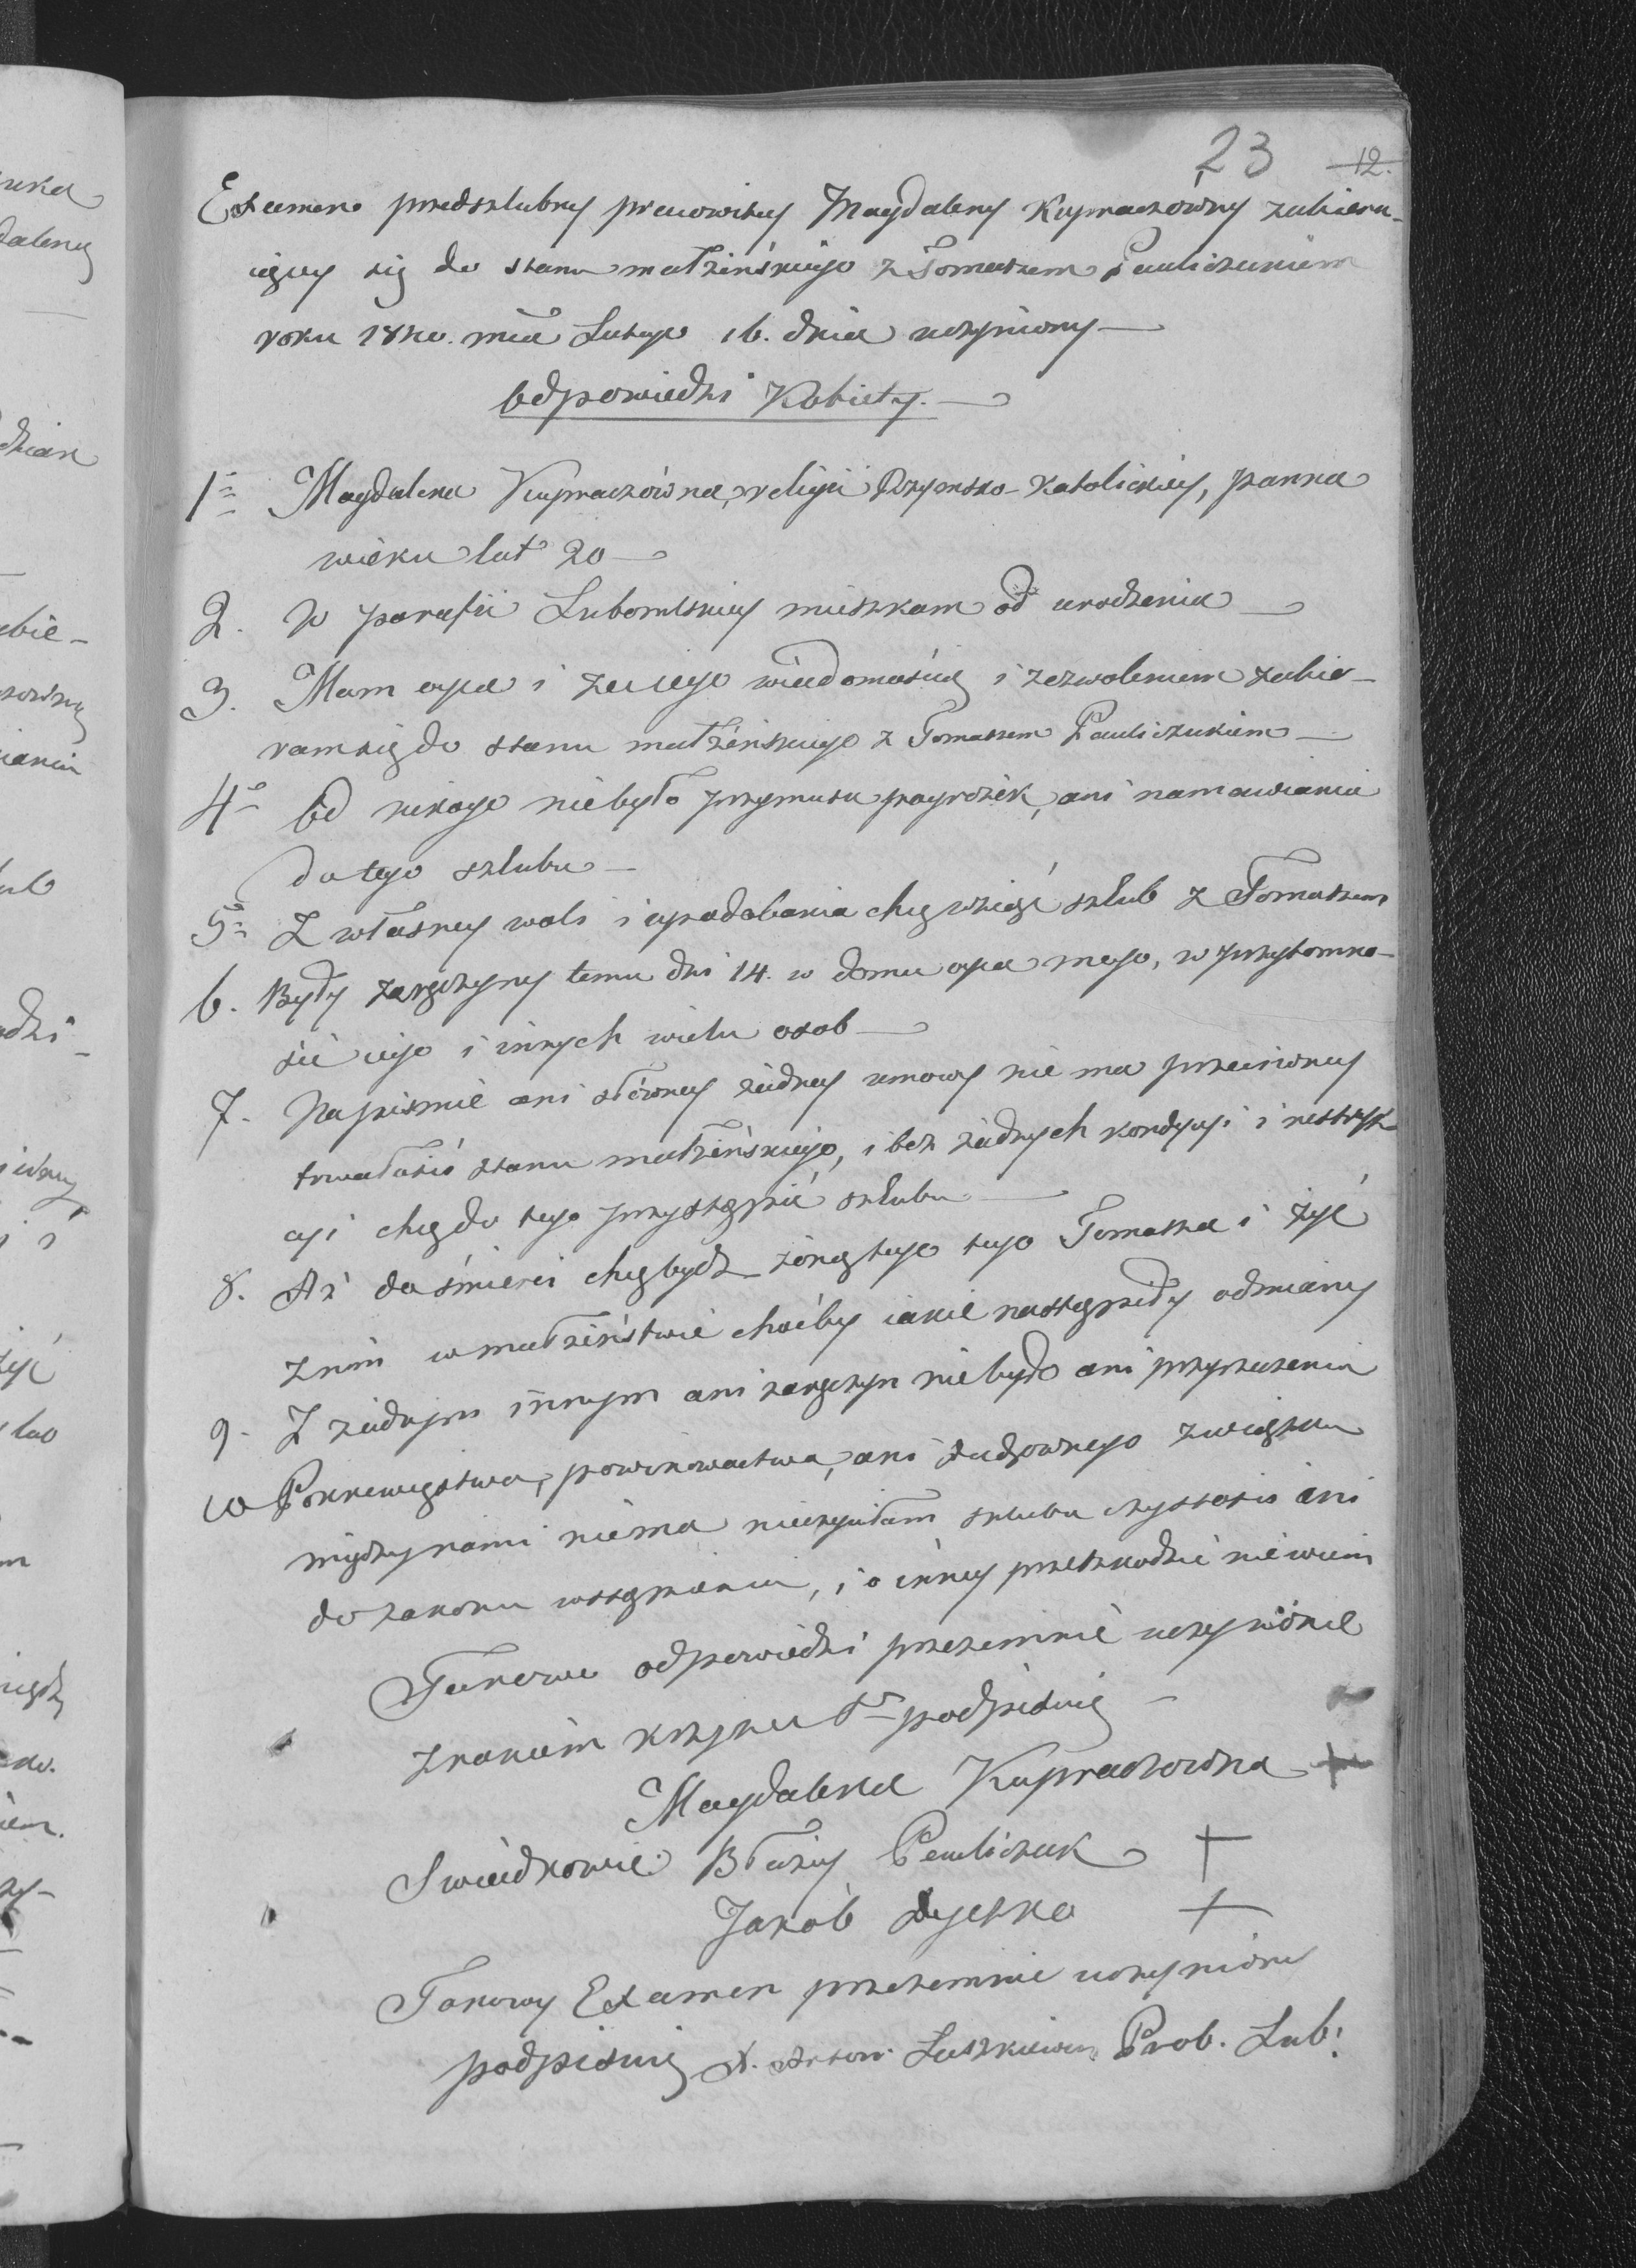 23 12.
Examen przedszlubny pracowitey Magdaleny Kupraczówny zabiera-
iącey się do stanu małżeńskiego z Tomaszem Pauliczukiem
roku 1820. mca Lutego 16. dnia uczyniony
Odpowiedzi Kobiety.
1o Magdalena Kupraczówna, religii Rzymsko-Katolickiey, panna
wieku lat 20
2. W parafii Lubomlskiey mieszkam od urodzenia
3. Mam oyca i za iego wiadomością i zezwoleniem zabie-
ram się do stanu małżeńskiego z Tomaszem Pauliczukiem
4o Od nikogo niebyło przymusu pogrożek, ani namawiania
do tego szlubu
5o Z własney woli i upodobania chcę wziąść szlub z Tomaszem
6. Były zaręczyny temu dni 14. w domu oyca mego, w przytomno-
ści iego i innych wielu osob
7. Na piśmie ani słówney żadney umowy nie ma przeciwney
trwałości stanu małżeńskiego, i bez żadnych kondycyi i restryk
cyi chcę do tego przystąpić szlubu
8. Aż do śmierci chcę bydź żoną tego tego Tomasza i żyć
z nim w małżeństwie choćby iakie nastąpiły odmiany
9. Z żadnym innym ani zaręczyn niebyło ani przyrzeczenia
10 Pokrewięstwa, powinowactwa, ani duchownego związku
między nami niema nieczyniłam szlubu czystości ani
do zakonu wstąpienia, i o inney przeszkodzie niewiem
Takowe odpowiedzi przezemnie uczynione
znakiem krzyża S. podpisuię
Magdalena Kupraczowna +
Swiadkowie Błażey Pauliczuk +
Jakób +
Takowy Examen przezemnie uczyniony
podpisuię X. Anton. Luszkiewicz Prob. Lub: